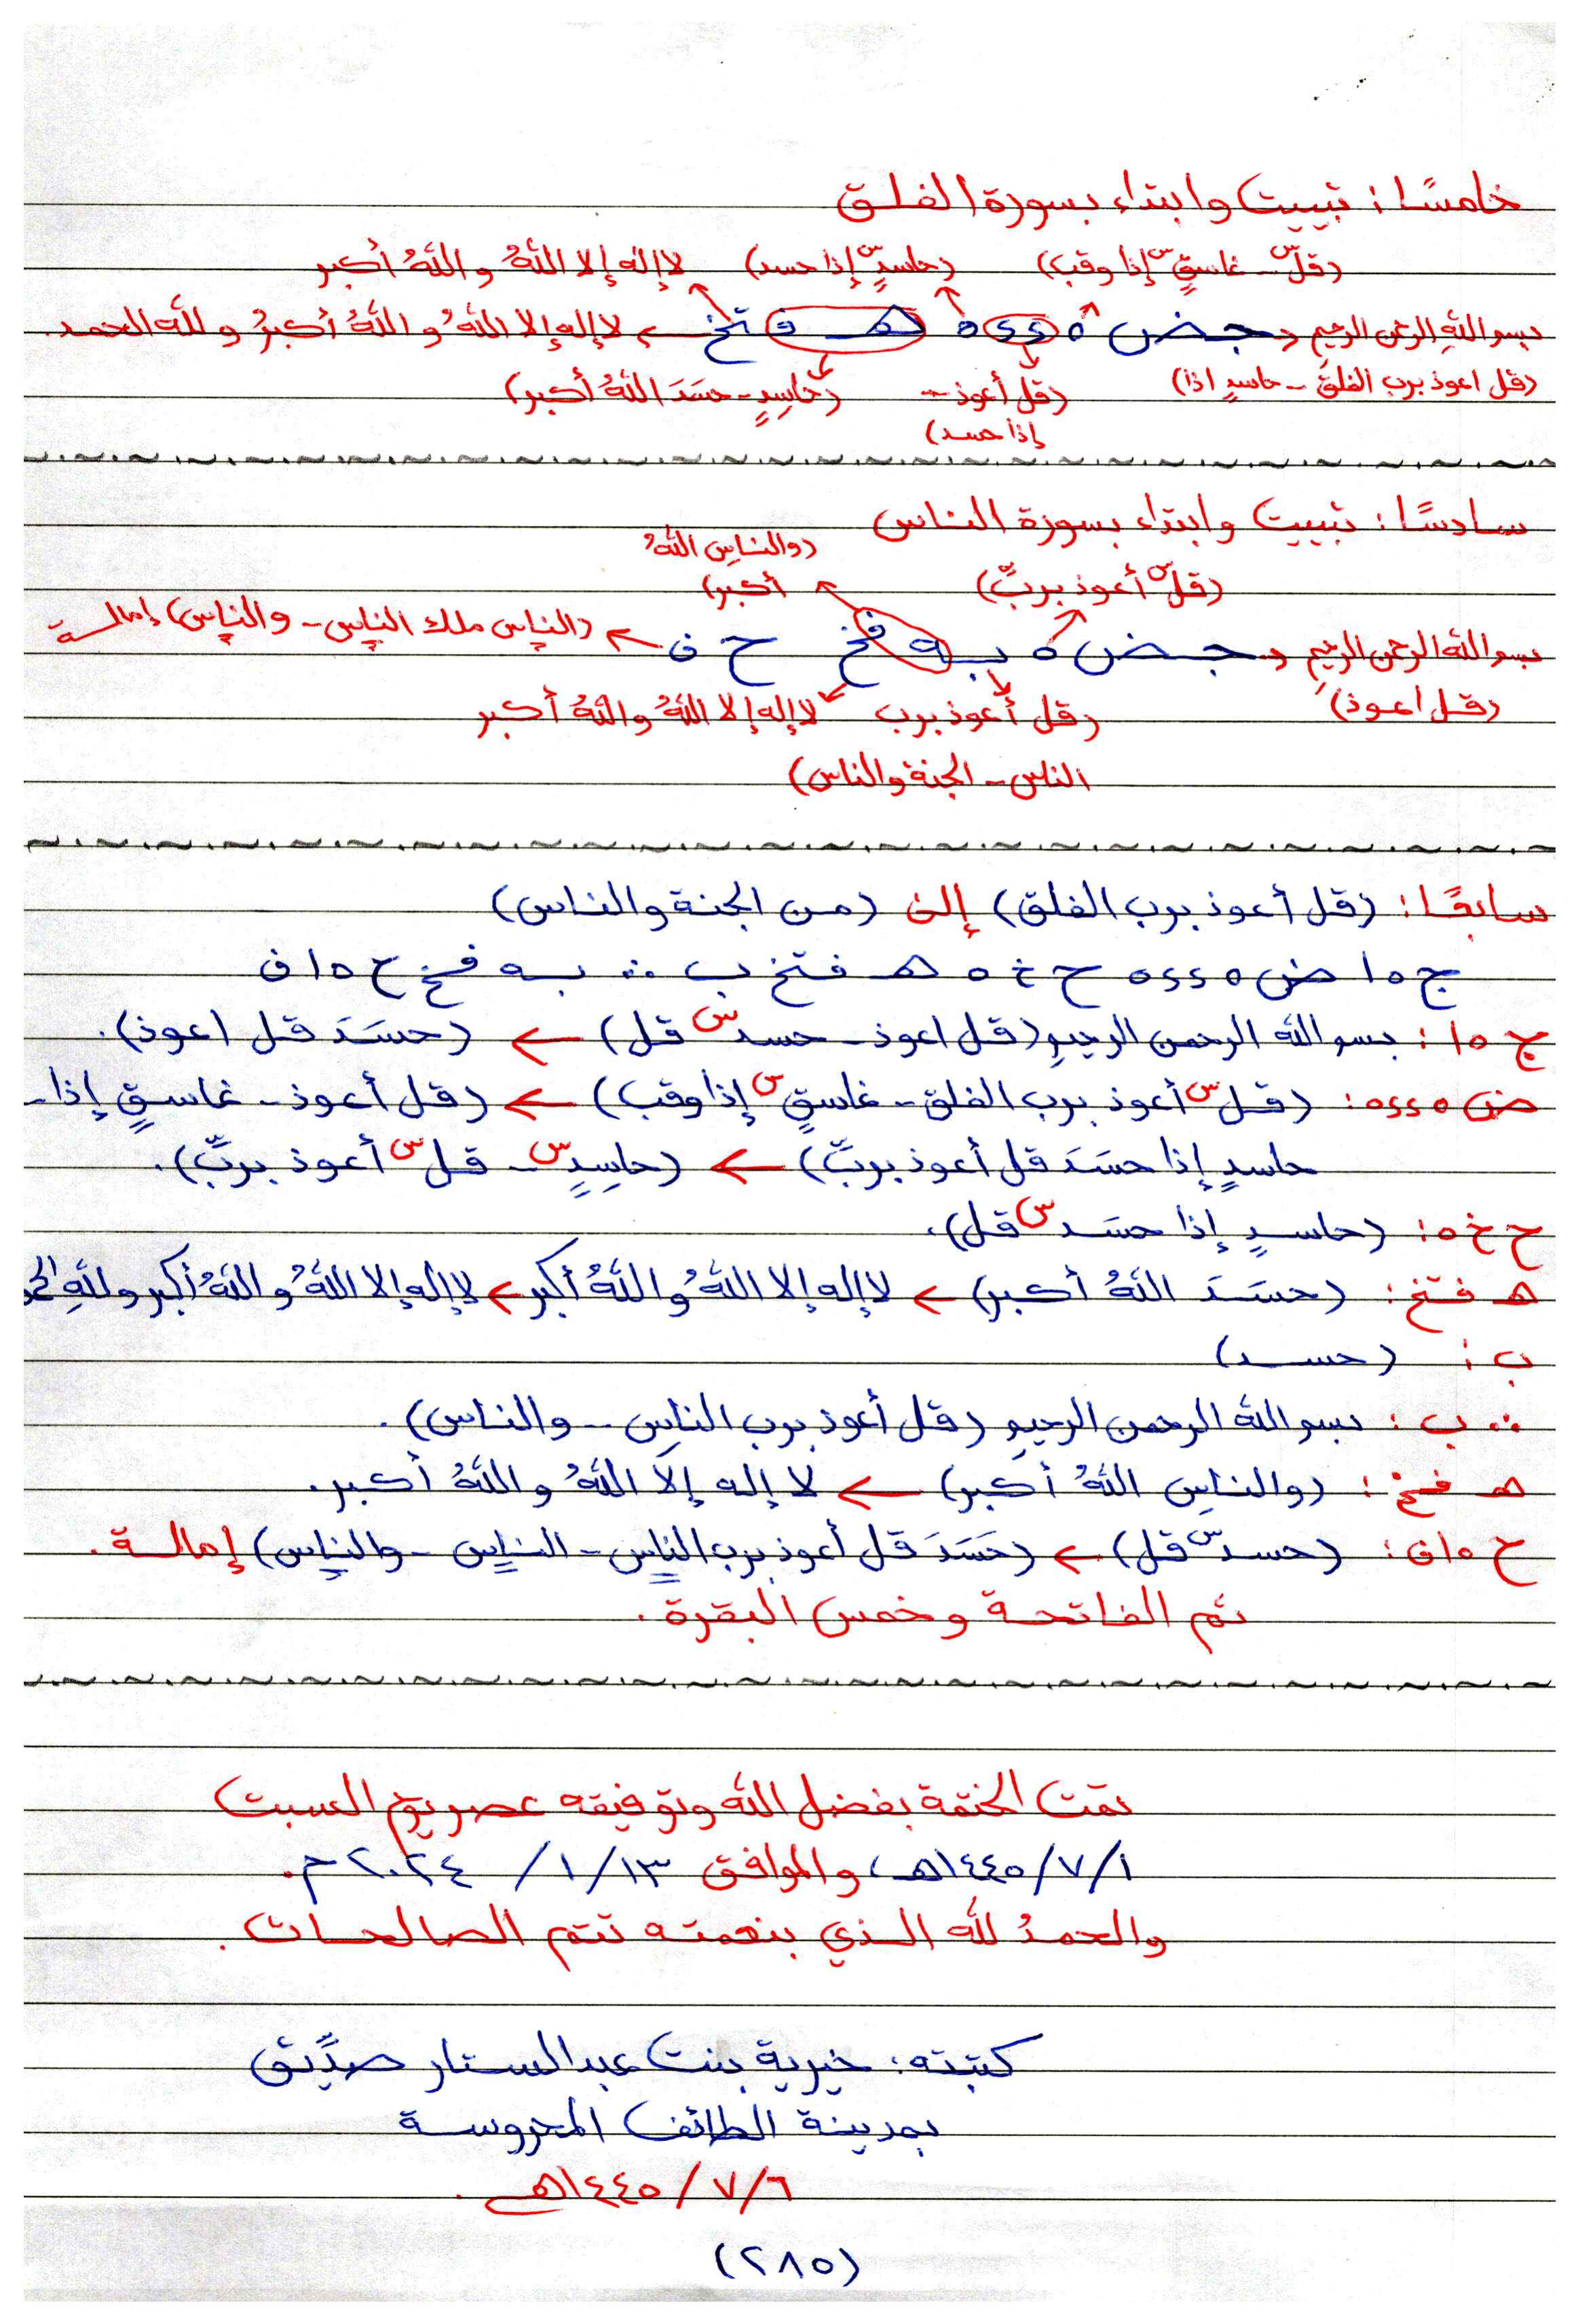 خامسًا: تبييت وابتداء بسورة الفلق
(قلّ س - غاسقٍ س إذا وقب) (حاسدٍ س إذا حسد) لا إله إلا اللهُ واللهُ أكبر
بسم اللهِ الرحمن الرحيم ← جـ ض ه ٥٤٤ ه هـ فتخ ← لا إله إلا اللهُ واللهُ أكبرُ ولله الحمد.
(قل اعوذ برب الفلق - حاسدٍ اذا) (قل أعوذ - (حاسِدٍ - حسَدَ اللهُ أكبر)
إذا حسد)
سادسًا: تبييت وابتداء بسورة الناس
(والناسِ اللهُ
(قلّ س أعوذ بربّ) أكبر)
بسم الله الرحمن الرحيمِ ← جـ ض ه بـ ه فخ ح ف ← (الناس ملك الناس - والناس) إمالة
(قل اعوذ) (قل أعوذ برب لا إله إلا اللهُ واللهُ أكبر
الناس - الجنة والناس)
سابعًا: (قل أعوذ برب الفلق) إلى (من الجنة والناس)
ج ه ا ض ه ٤٤ ه ح خ ه هـ فتخ ب ∴ بـ ه فخ ح ه ا ف
ج ه ا: بسم الله الرحمن الرحيمِ (قل اعوذ - حسد س قل) ← (حسَدَ قل اعوذ).
ض ه ٤٤ ه: (قل س أعوذ برب الفلق - غاسقٍ س إذا وقب) ← (قل أعوذ - غاسقٍ إذا -
حاسدٍ إذا حسَدَ قل أعوذ بربّ) ← (حاسِدٍ س - قل س أعوذ بربّ).
ح خ ه: (حاسدٍ إذا حسَد س قل).
هـ فتخ: (حسَدَ اللهُ أكبر) ← لا إله إلا اللهُ واللهُ أكبر ← لا إله إلا اللهُ واللهُ أكبر وللهِ
ب: (حسد)
∴ ب: بسم الله الرحمن الرحيمِ (قل أعوذ برب الناس - والناس).
هـ فخ: (والناسِ اللهُ أكبر) ← لا إله إلّا اللهُ واللهُ أكبر.
ح ه ا ف: (حسد س قل) ← (حَسَدَ قل أعوذ برب الناس - الناس - والناس) إمالة.
ثم الفاتحة وخمس البقرة.
تمت الختمة بفضل الله وتوفيقه عصر يوم السبت
١/٧/١٤٤٥هـ، والموافق ١٣/١/٢٠٢٤م.
والحمدُ لله الذي بنعمته تتم الصالحات.
كتبته: خيرية بنت عبدالستار صدِّيق
بمدينة الطائف المحروسة
٦/٧/١٤٤٥هـ.
(٢٨٥)